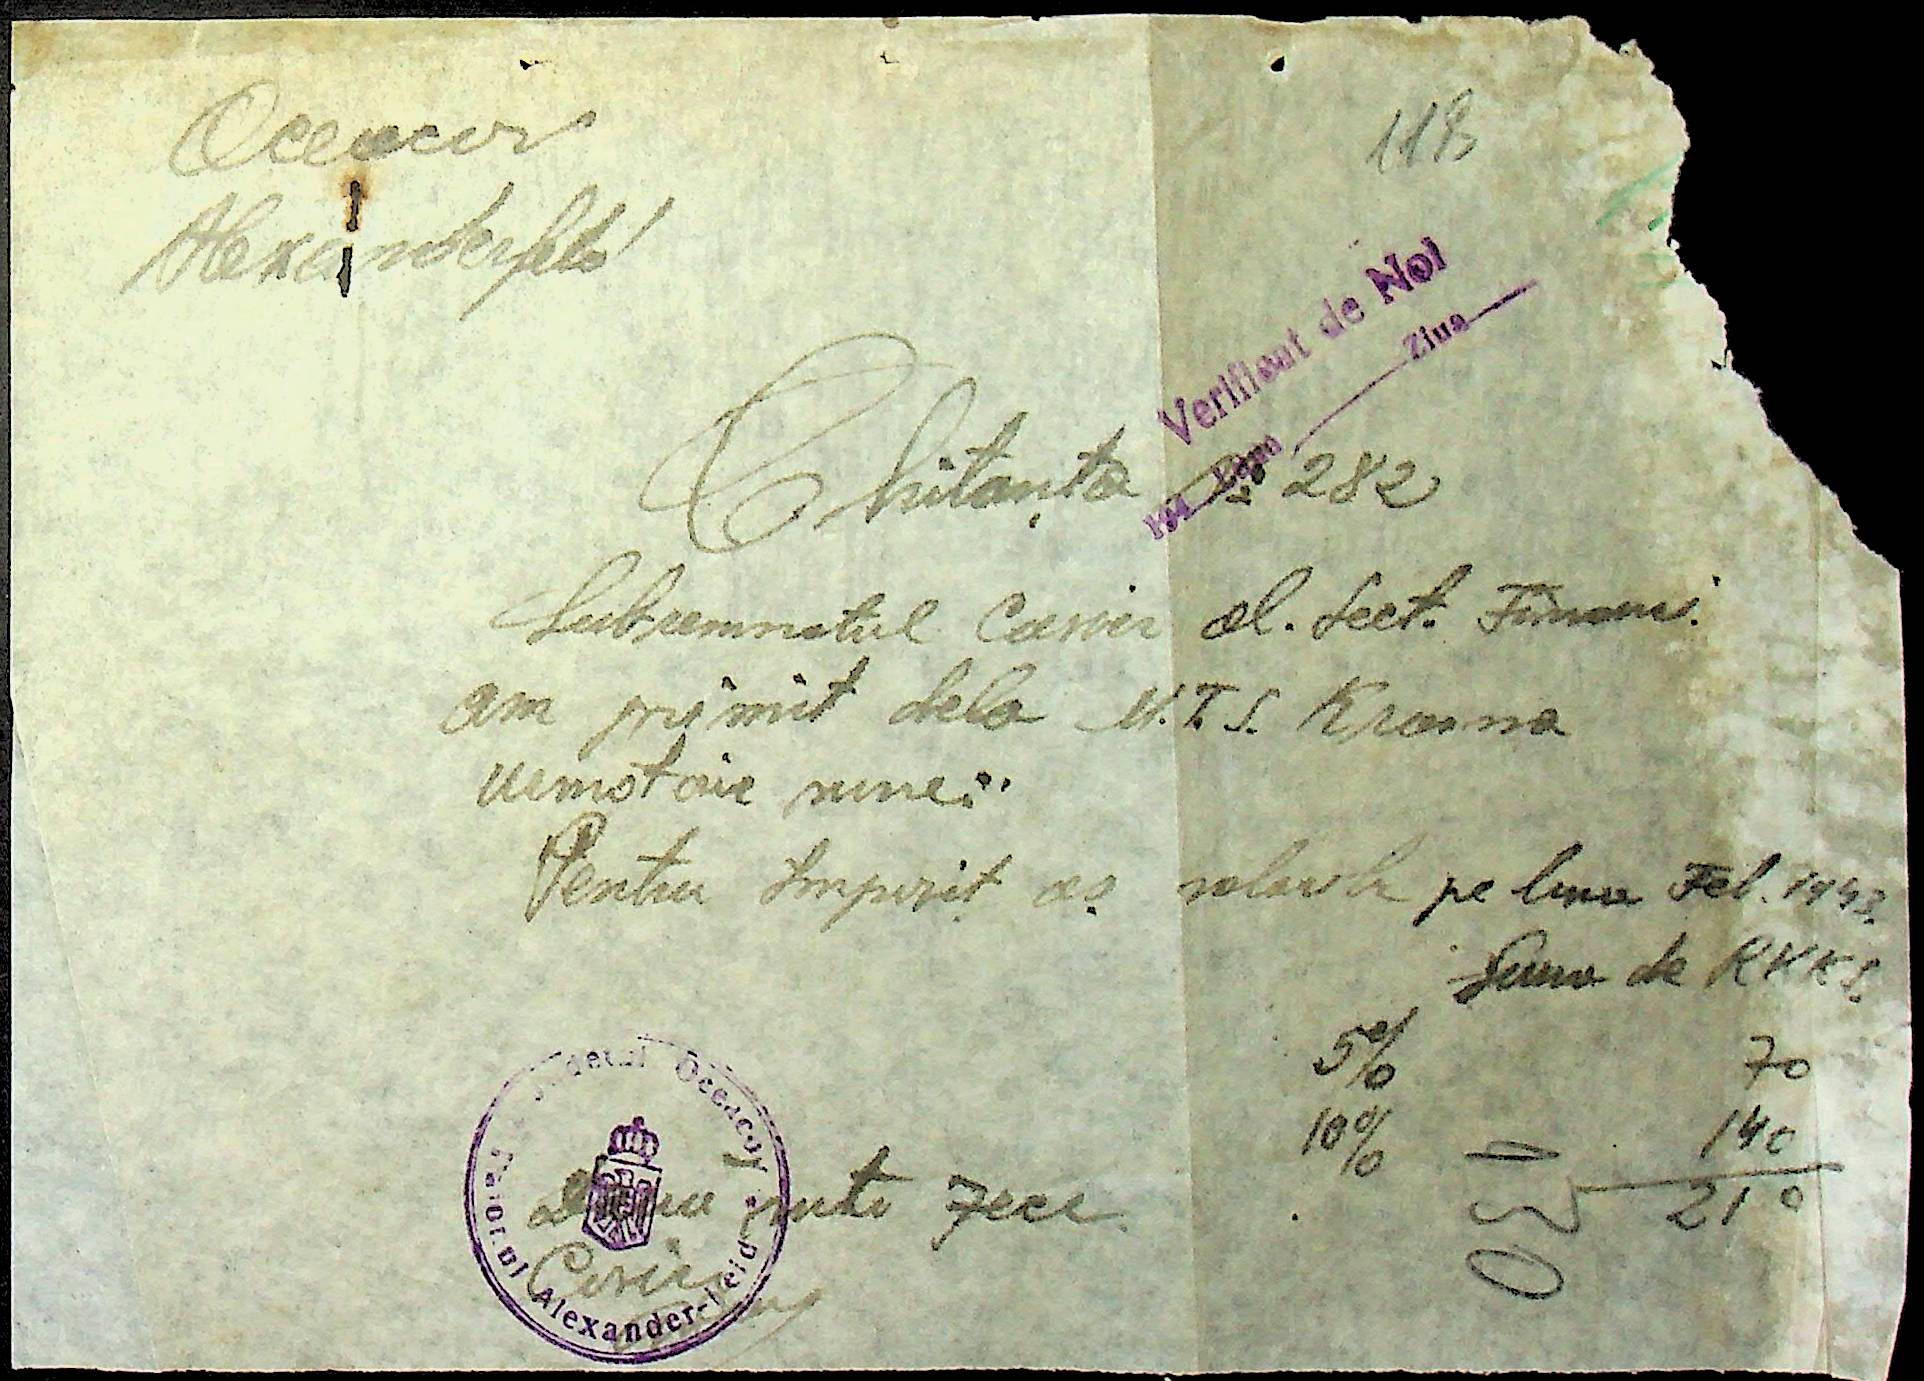 Oceacov
Alexanderfeld
118
Verificat de Noi
Ziua
Chitanța No 282
Subsemnatul Casier al. Sect. Financi.
am primit dela M.T.S. Krasna
următoare sume:
Pentru Impozit as salarii pe luna Feb. 1943.
Suma de RKKS.
5% 70
10% 140
210
Două sute zece
Casier
Județul Oceacov
Raionul Alexander-Feld